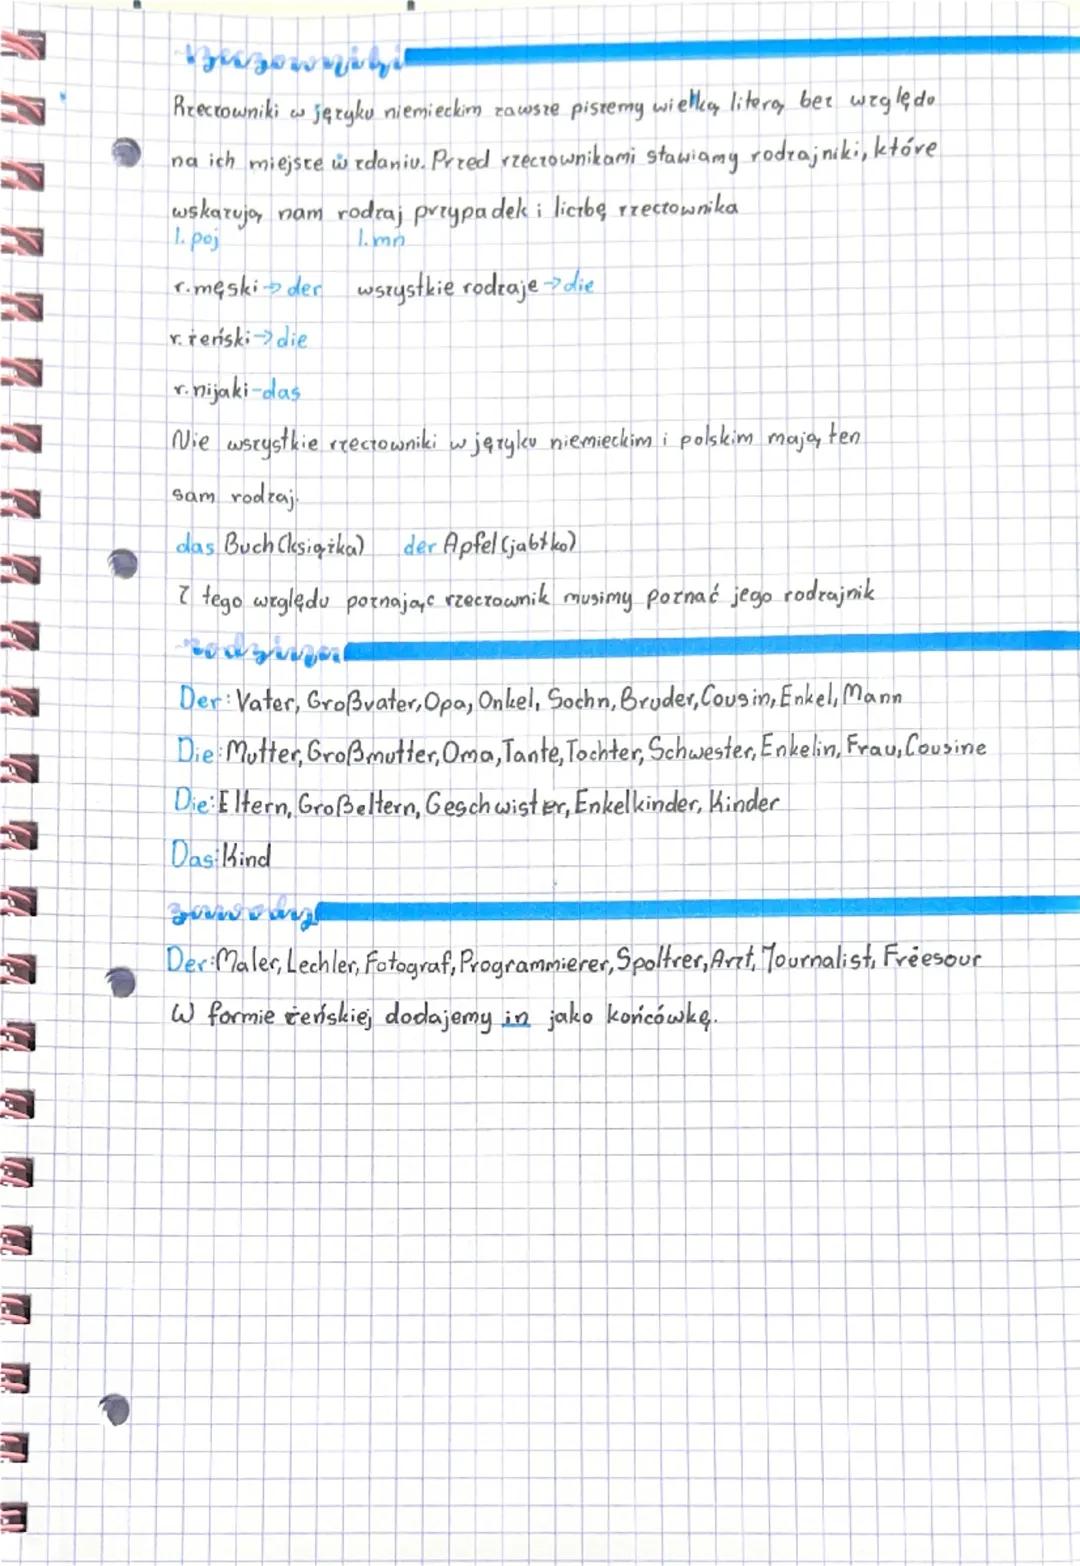 rzeczowniki
Rzeczowniki w języku niemieckim zawsze piszemy wielką literą bez względu
na ich miejsce w zdaniu. Przed rzeczownikami stawiamy rodzajniki, które
wskazują nam rodzaj przypadek i liczbę rzeczownika
l. poj l. mn
r. męski → der wszystkie rodzaje → die
r. żeński → die
r. nijaki - das
Nie wszystkie rzeczowniki w języku niemieckim i polskim mają ten
sam rodzaj.
das Buch (książka) der Apfel (jabłko)
Z tego względu poznając rzeczownik musimy poznać jego rodzajnik
rodzina
Der: Vater, Großvater, Opa, Onkel, Sochn, Bruder, Cousin, Enkel, Mann
Die: Mutter, Großmutter, Oma, Tante, Tochter, Schwester, Enkelin, Frau, Cousine
Die: Eltern, Großeltern, Geschwister, Enkelkinder, Kinder
Das: Kind
zawody
Der: Maler, Lechler, Fotograf, Programmierer, Spoltrer, Arzt, Journalist, Freesour
W formie żeńskiej dodajemy in jako końcówkę.